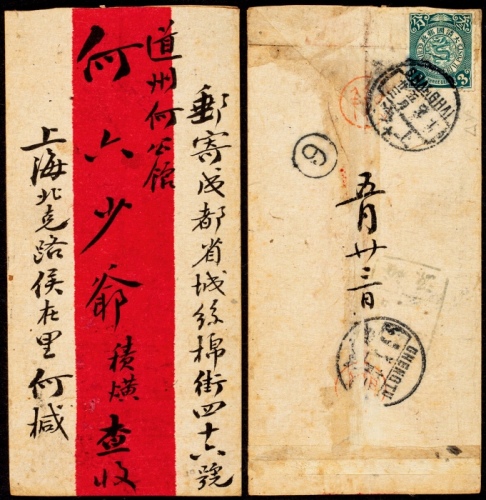 郵寄成都省城絲棉街四十六號
道州何公館
何六少爺 積熿 查收
上海北克路侯在里何椷
3
SHANGHAI
6
五月廿三日
CHENGTU